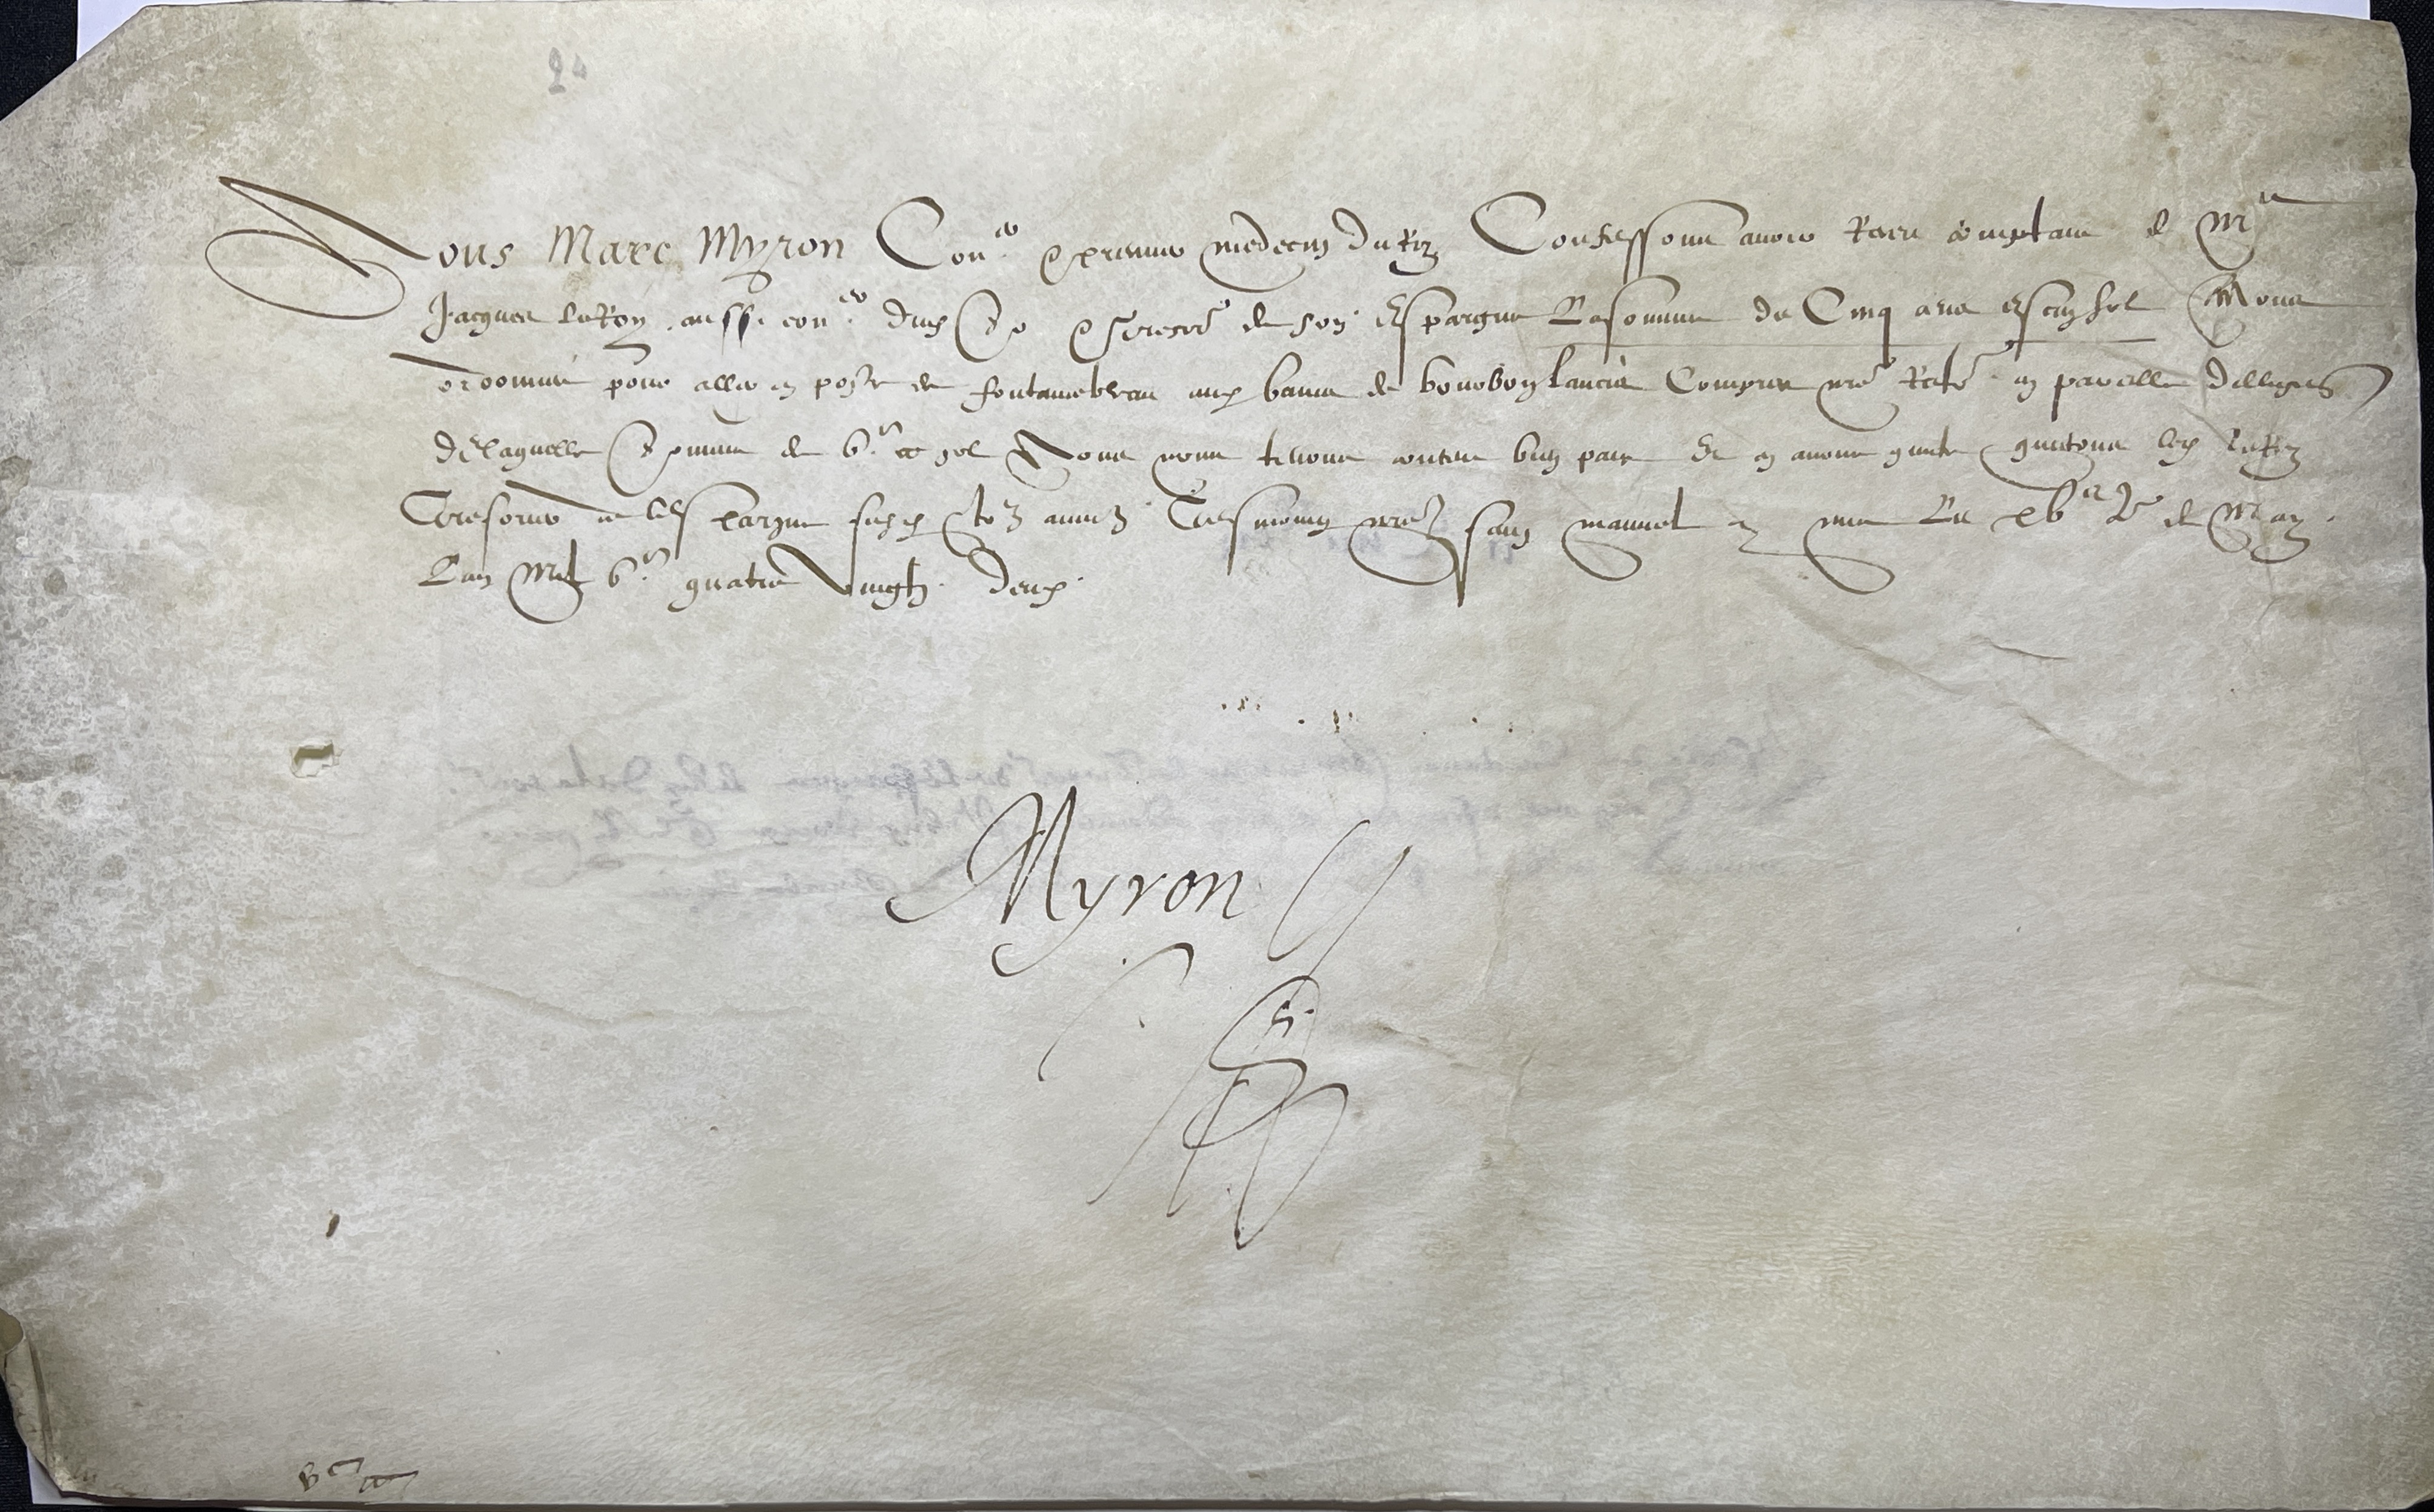 Nous Marc Myron Con.er & premier medecin du Roy Confessons avoir Receu comptant de Mre
Jacques le Roy aussi con.er dud Sr & Tresorier de son Espargne La somme de Cinq cens escuz sol A Nous
ordonnée pour aller en poste de fontainebleau aux bains de bourbon lancis Compris nre Retor en pareille dilligence
De laquelle Somme de vc escuz sol Nous nous tenons contens bien paié Et en avons quicte quictons led le Roy
Tresorier de lespargne susd & tos autres Tesmoing nre saing manuel cy mis Le xve Jor de May
L'an Mil vc quatre Vingtz deux
Myron